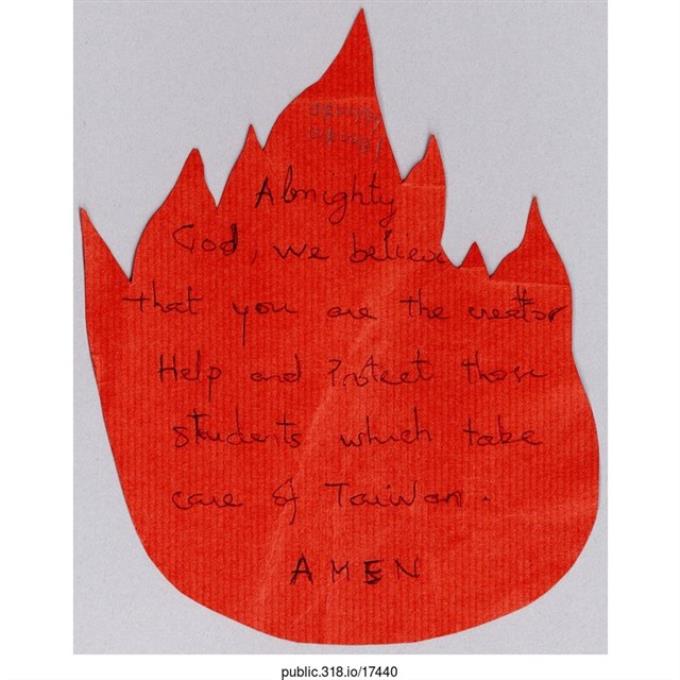 Almighty
God, we believe
that you are the creator
Help and Protect those
students which take
care of Taiwan.
AMEN
public.318.io/17440